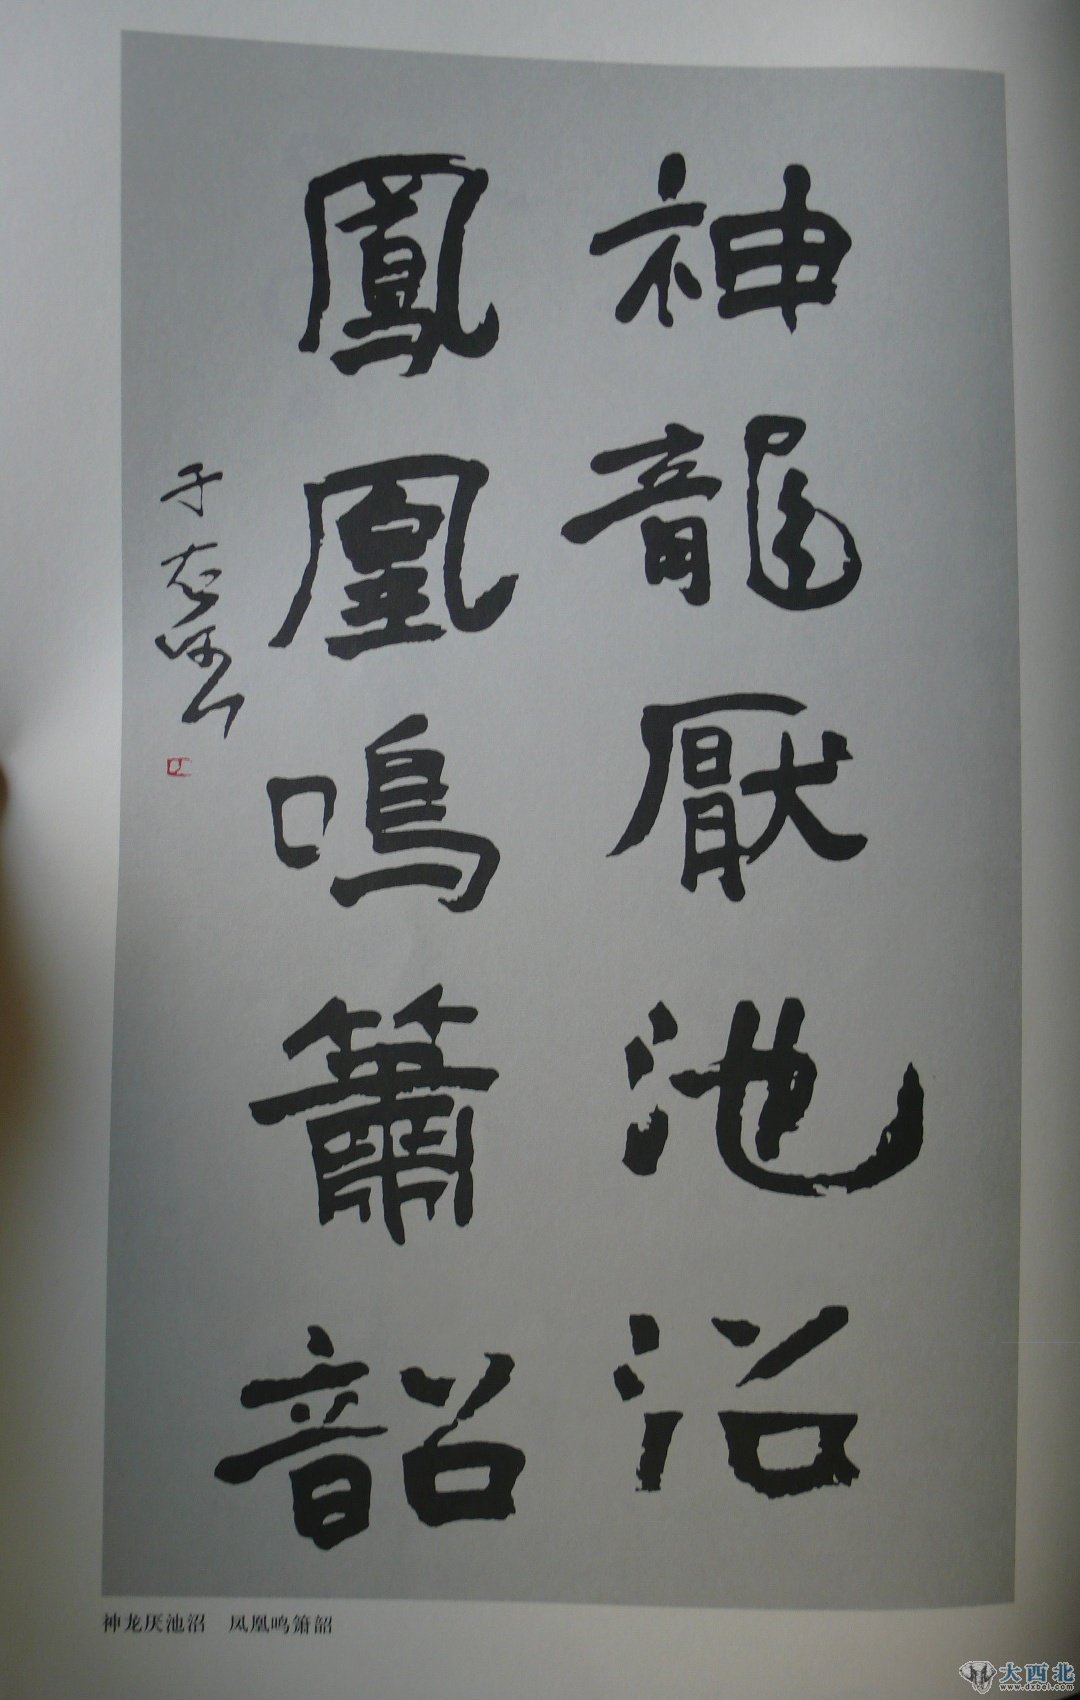 神龍厭池沼
鳳凰鳴簫韶
于右
神龙厌池沼　凤凰鸣箫韶
大西北
www.dxbei.com